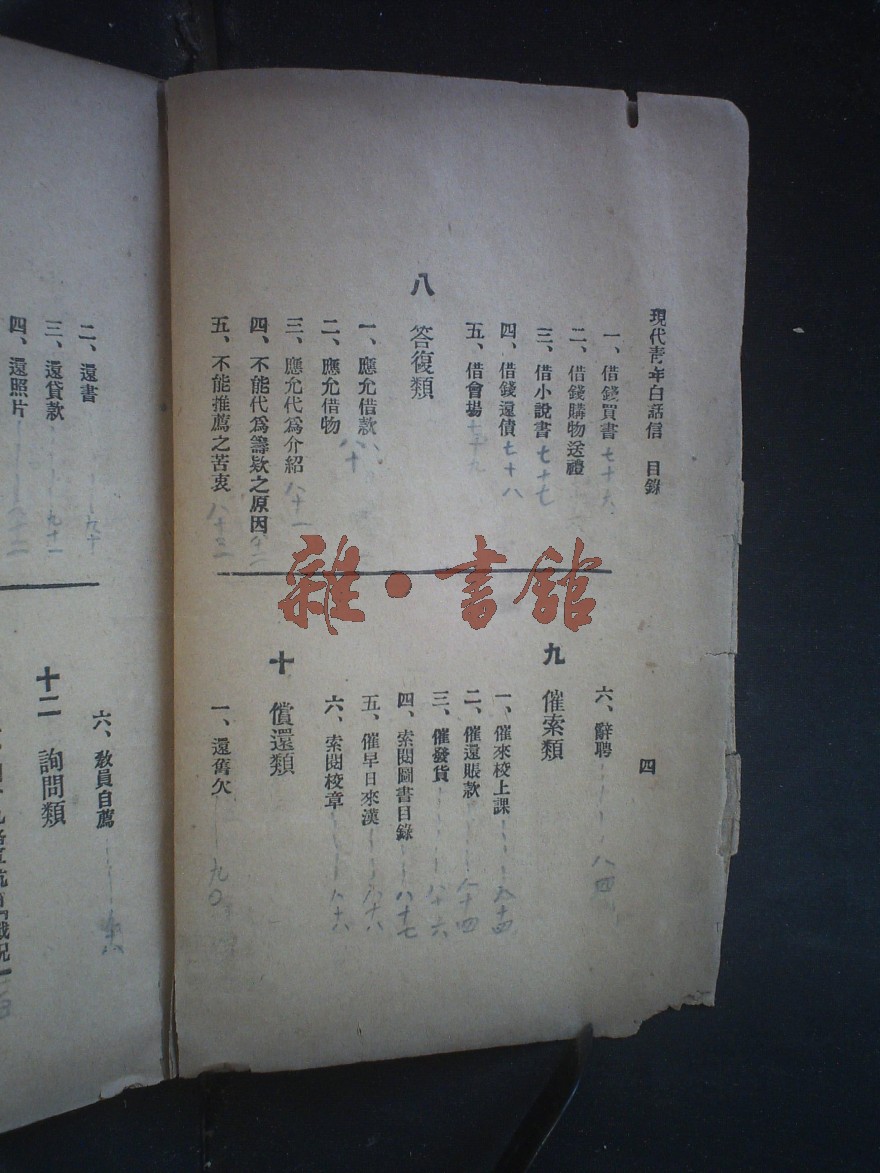 現代靑年白話信　目錄
四
一、借錢買書 七十六
二、借錢購物送禮
三、借小說書 七十七
四、借錢還債 七十八
五、借會場 七十九
八　答復類
一、應允借款
二、應允借物 八十
三、應允代爲介紹 八十一
四、不能代爲籌欵之原因
五、不能推薦之苦衷 八十三
六、辭聘 八四
九　催索類
一、催來校上課 八十四
二、催還賬款 八十四
三、催發貨 八十六
四、索閱圖書目錄 八十七
五、催早日來漢 八十八
六、索閱校章 八十八
十　償還類
一、還舊欠 九〇
二、還書 九十
三、還貸款 九十一
四、還照片 九十二
六、敎員自薦
十二　詢問類
雜·書館